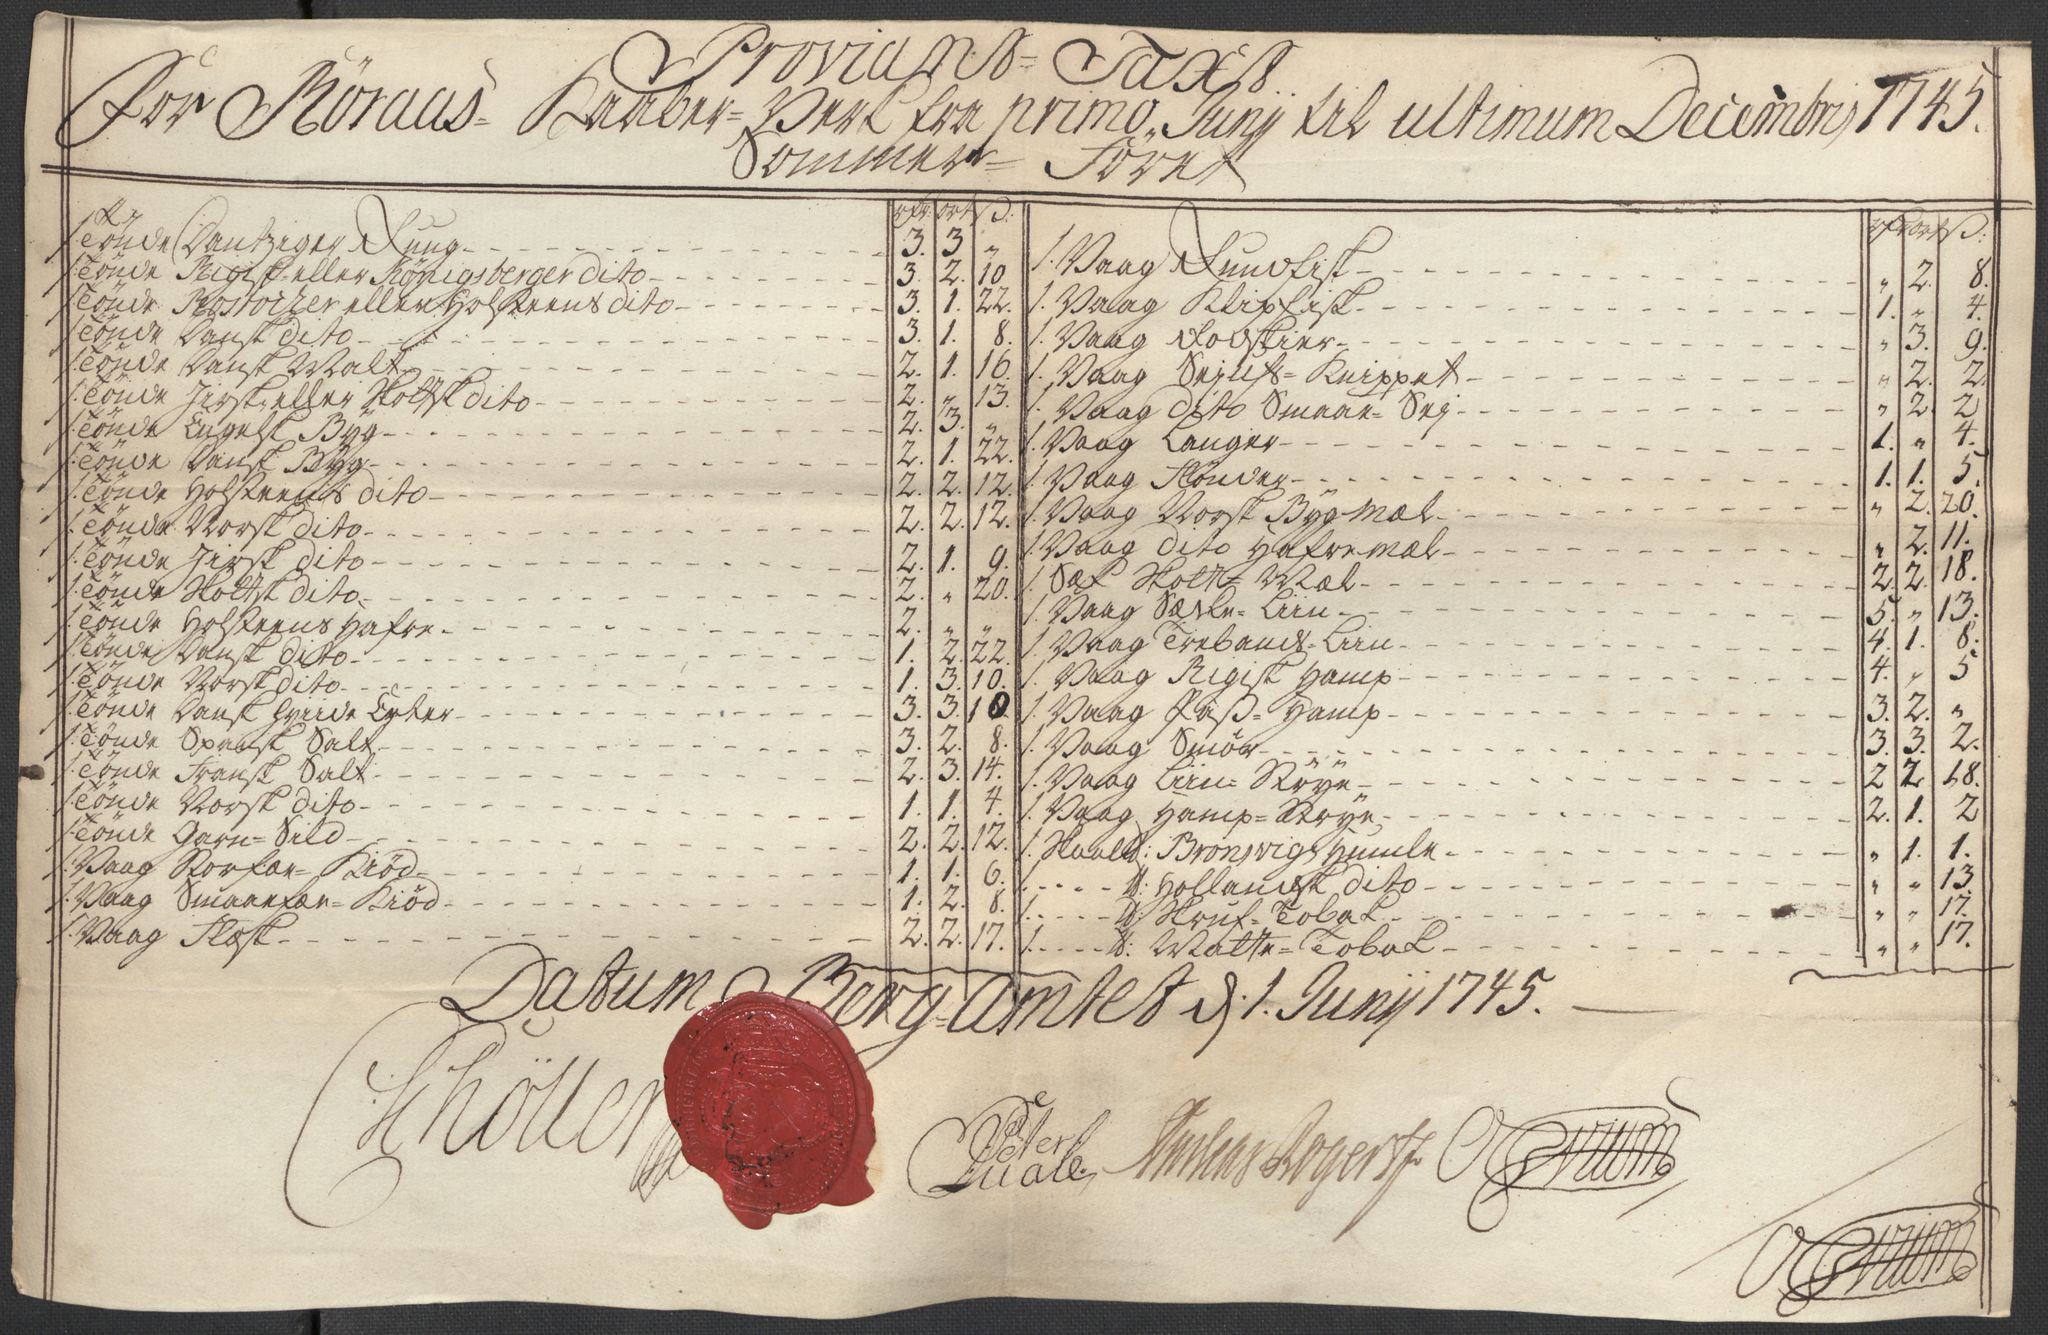 Proviant-Taxt
For Röraas-Kaaber-Verk fra primo Junij til ultimum Decembris 1745.
Sommer-Föret
rdr ort ß:
1. Tönde Dantziger Rug - 3. 3. „
1. Tönde Rigisk eller Königsberger dito - 3. 2. 10
1. Tönde Rostocker eller Holsteens dito - 3. 1. 22.
1. Tönde Dansk dito - 3. 1. 8.
1. Tönde Dansk Malt - 2. 1. 16.
1. Tönde Jirsk eller Skottsk dito - 2. „ 13.
1. Tönde Engelsk Byg - 2. 3. „
1. Tönde Dansk Byg - 2. 1. 22.
1. Tönde Holsteens dito - 2. 2. 12.
1. Tönde Norsk dito - 2. 2. 12.
1. Tönde Jirsk dito - 2. 1. 9.
1. Tönde Skottsk dito - 2. „ 20.
1. Tönde Holsteens Hafre - 2. „ „
1. Tönde Dansk dito - 1. 2. 22.
1. Tönde Norsk dito - 1. 3. 10.
1. Tönde Dansk Hviide Erter - 3. 3. 10.
1. Tönde Spansk Salt - 3. 2. 8.
1. Tönde Fransk Salt - 2. 3. 14.
1. Tönde Norsk dito - 1. 1. 4.
1. Tönde Garn-Sild - 2. 2. 12.
1. Vaag Storfæ-Kiöd - 1. 1. 6.
1. Vaag Smaaefæ-Kiöd - 1. 2. 8.
1. Vaag Flæsk - 2. 2. 17.
rdr ort ß:
1. Vaag Rundfisk - „ 2. 8.
1. Vaag Klipfisk - 1. „ 4.
1. Vaag Rodskier - „ 3. 9.
1. Vaag Sejufs-Knippet - „ 2. 2.
1. Vaag dito Smaae-Sej - „ 2. 2
1. Vaag Langer - 1. „ 4.
1. Vaag Flönder - 1. 1. 5.
1. Vaag Norsk Bygmæl - „ 2. 20.
1. Vaag dito Hafremæl - „ 2. 11.
1. Sæk Skott-Mæl - 2. 2. 18.
1. Vaag Sætte-Liin - 5. „ 13.
1. Vaag Trebands-Liin - 4. 1. 8.
1. Vaag Rigisk Hamp - 4. „ 5
1. Vaag Pass-Hamp - 3. 2. „
1. Vaag Smör - 3. 3. 2.
1. Vaag Liin-Strÿe - 2 2 18.
1. Vaag Hamp-Strÿe - 2. 1. 2
1. Skaall: Bronsvigs Humle - „ 1. 1.
1. - - - ℔: Hollandsk dito - „ „ 13.
1. - - - ℔: Skruf-Tobak - „ „ 17.
1. - - - ℔: Matte-Tobak - „ „ 17.
Datum Berg-Amtet d. 1. Junij 1745.
Schöller
Peter
Quale
Andreas Rogert